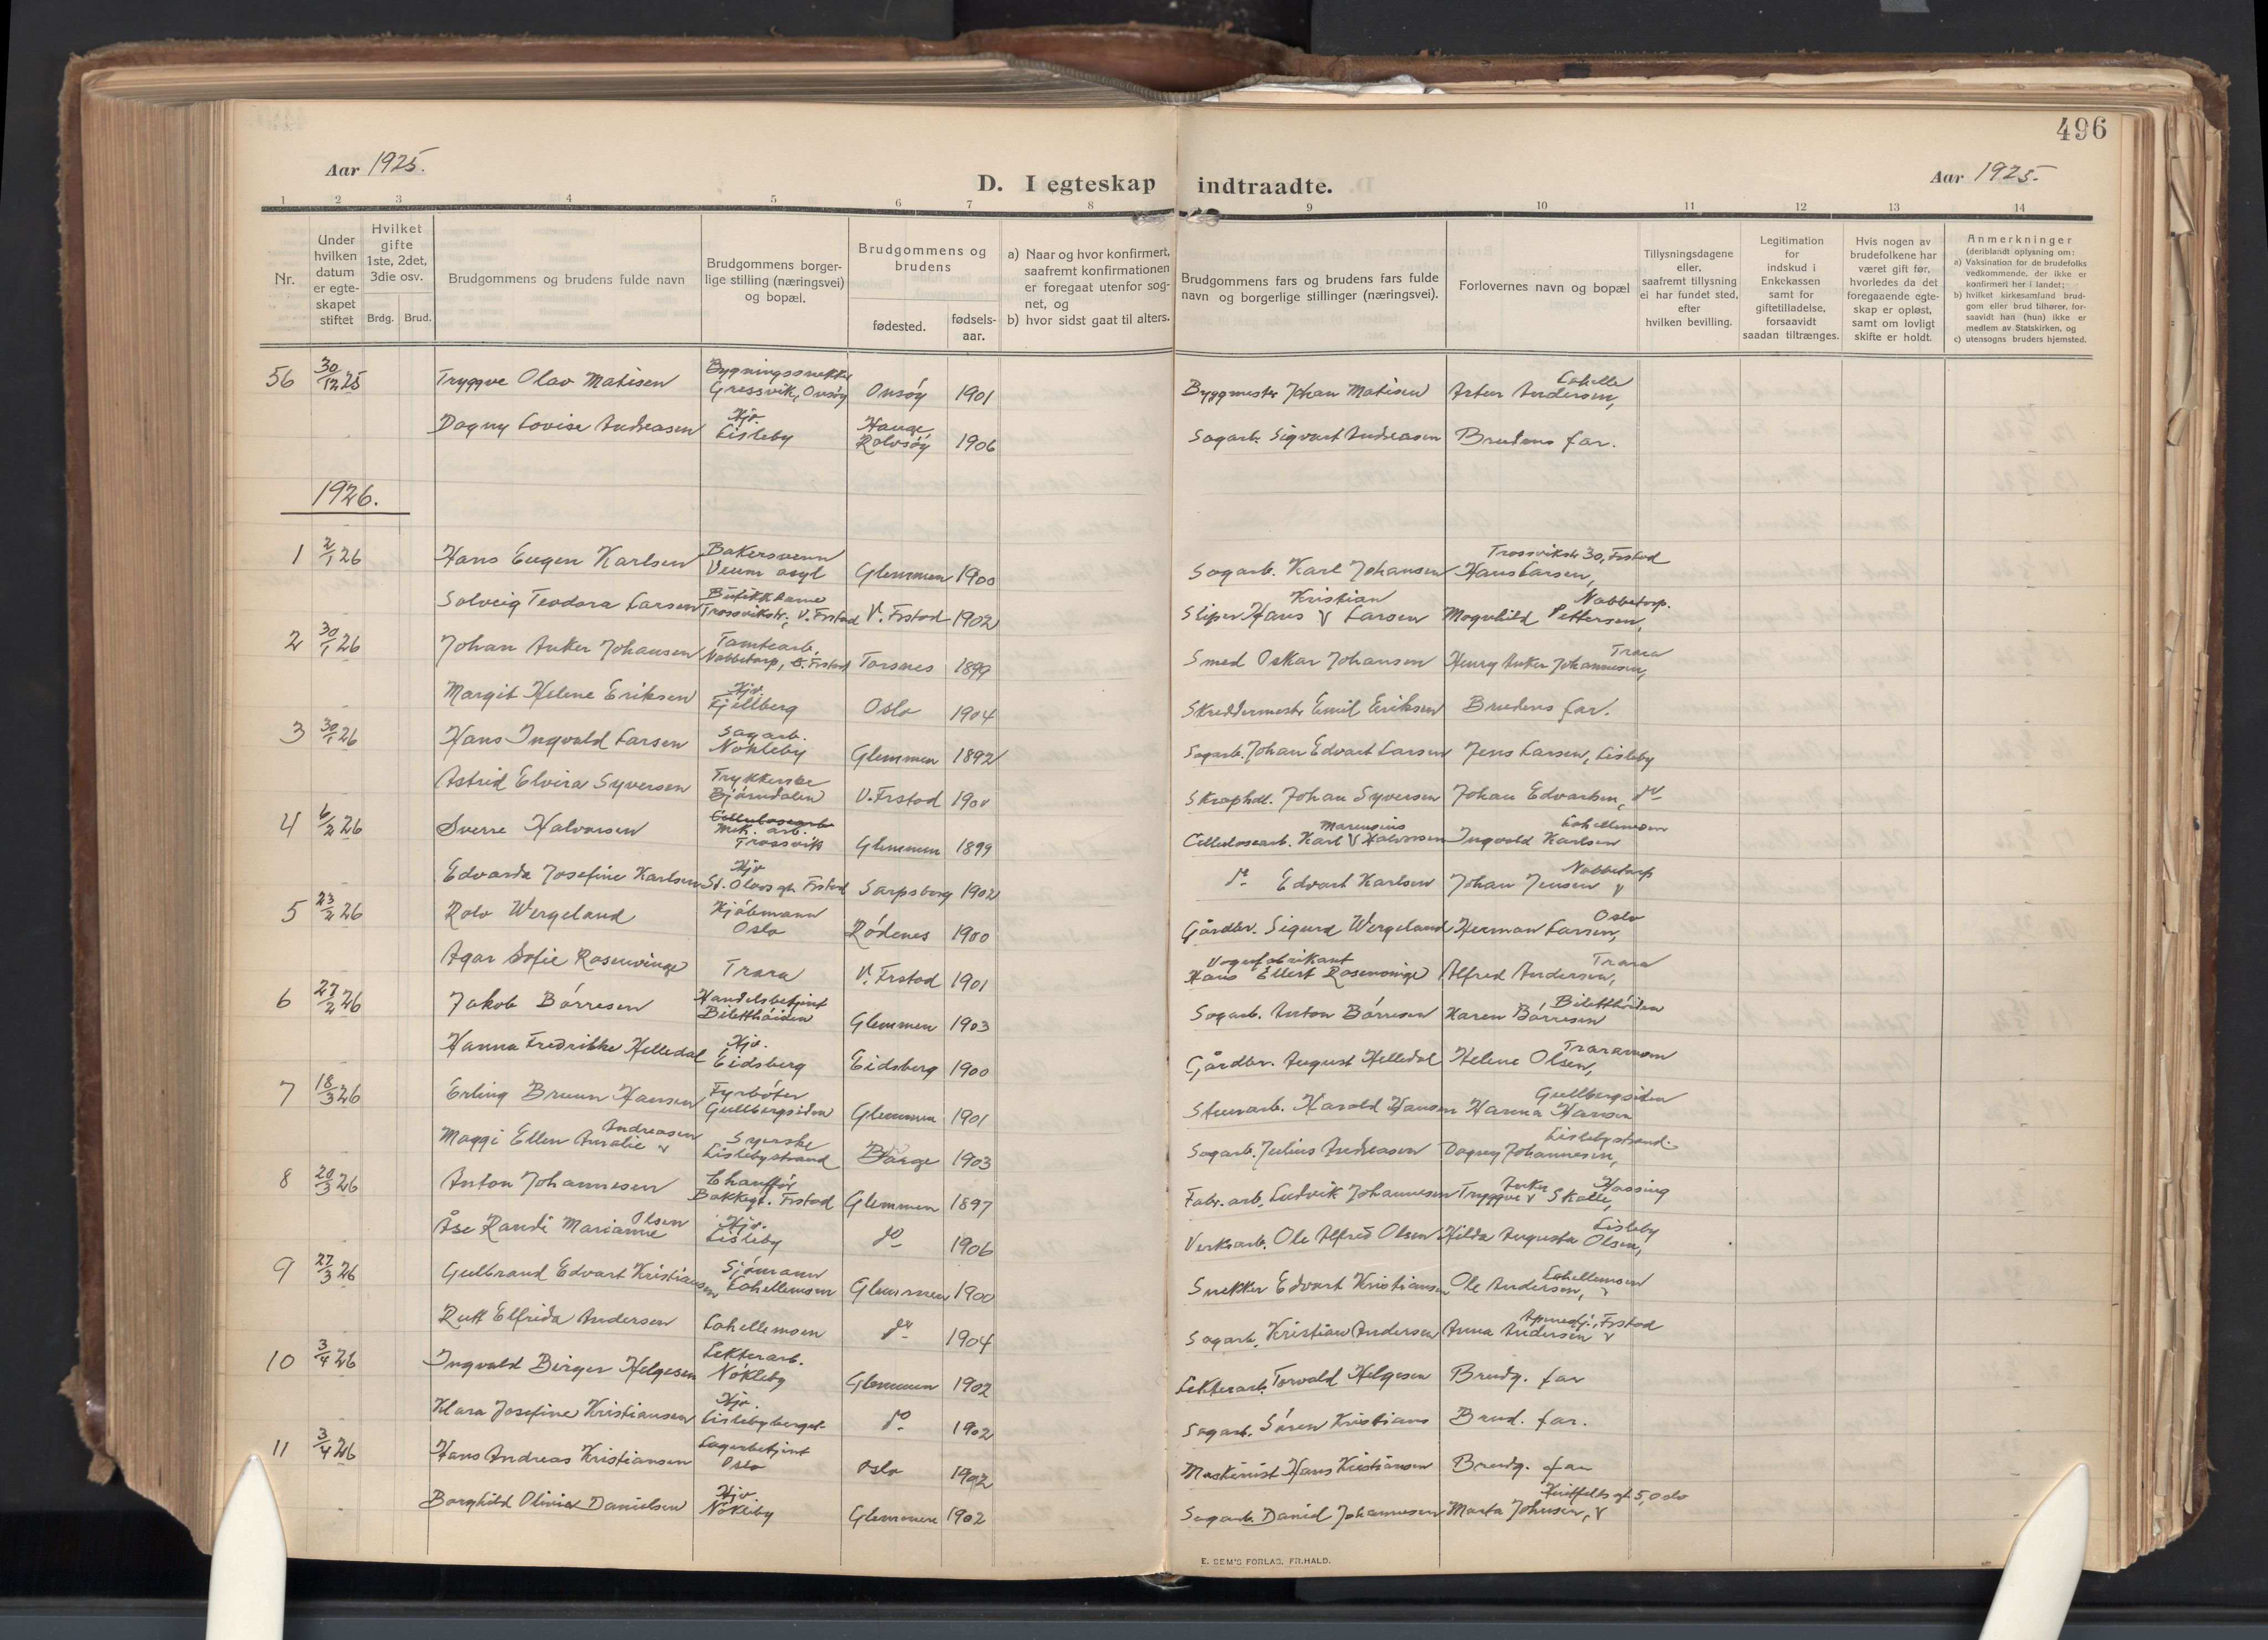 496
Aar 1925.
D. I egteskap indtraadte.
Aar 1925.
1 2 3 4 5 6 7 8 9 10 11 12 13 14
Nr.
Under hvilken datum er egte- skapet stiftet
Hvilket gifte 1ste, 2det, 3die osv.
Brdg. Brud.
Brudgommens og brudens fulde navn
Brudgommens borger- lige stilling (næringsvei) og bopæl.
Brudgommens og brudens
fødested.
fødsels- aar.
a) Naar og hvor konfirmert, saafremt konfirmationen er foregaat utenfor sog- net, og
b) hvor sidst gaat til alters.
Brudgommens fars og brudens fars fulde navn og borgerlige stillinger (næringsvei).
Forlovernes navn og bopæl
Tillysningsdagene eller, saafremt tillysning ei har fundet sted, efter hvilken bevilling.
Legitimation for indskud i Enkekassen samt for giftetilladelse, forsaavidt saadan tiltrænges.
Hvis nogen av brudefolkene har været gift før, hvorledes da det foregaaende egte- skap er opløst, samt om lovligt skifte er holdt.
Anmerkninger (deriblandt oplysning om: a) Vaksination for de brudefolks vedkommende, der ikke er konfirmert her i landet; b) hvilket kirkesamfund brud- gom eller brud tilhører, for- saavidt han (hun) ikke er medlem av Statskirken, og c) utensogns bruders hjemsted.
56 30/12 25 Tryggve Olav Matisen Bygningssnekker Gressvik, Onsöy Onsöy 1901 Byggmester Johan Matisen Artur Andersen, Lahelle
Dagny Lovise Andreasen Hjv. Lisleby Hauge, Rolvsöy 1906 Sagarb. Sigvart Andreasen Brudens far.
1926.
1 2/1 26 Hans Eugen Karlsen Bakersvenn Veum asyl Glemmen 1900 Sagarb. Karl Johansen Hans Larsen, Trossvikstr 30, Frstad
Solveig Teodora Larsen Butikkdame Trossvikstr. V. Frstad V. Frstad 1902 Sliper Hans Kristian Larsen Magnhild Pettersen, Nabbetorp.
2 30/1 26 Johan Anker Johansen Tomtearb. Nabbetorp, Ö. Frstad Torsnes 1899 Smed Oskar Johansen Henry Anker Johannesen, Trara
Margit Helene Eriksen Hjv. Fjellberg Oslo 1904 Skreddermestr Emil Eriksen Brudens far.
3 30/1 26 Hans Ingvald Larsen Sagarb. Nökleby Glemmen 1892 Sagarb. Johan Edvart Larsen Jens Larsen, Lisleby
Astrid Elvira Syversen Trykkerske Bjørndalen V. Frstad 1900 Skraphdl. Johan Syversen Johan Edvartsen, do
4 6/2 26 Sverre Halvorsen Cellulosearb Mek. arb. Trossvik Glemmen 1899 Cellulosearb. Karl Marensius Halvorsen Ingvald Karlsen Lahellemoen
Edvarda Josefine Karlsen Hjv St. Olavs gt. Frstad Sarpsborg 1902 do Edvart Karlsen Johan Jensen Nabbetorp
5 23/2 26 Rolv Wergeland Kjöbmann Oslo Rödenes 1900 Gårdbr. Sigurd Wergeland Herman Larsen, Oslo
Agar Sofie Rosenvinge Trara V. Frstad 1901 Vognfabrikant Hans Ellert Rosenvinge Alfred Andersen, Trara
6 27/2 26 Jakob Börresen Handelsbetjent Biletthöiden Glemmen 1903 Sagarb. Anton Börresen Karen Börresen Biletthöiden
Hanna Fredrikke Helledal Hjv. Eidsberg Eidsberg 1900 Gårdbr. August Helledal Helene Olsen, Traramoen
7 18/3 26 Erling Bruun Hansen Fyrböter Gullbergsiden Glemmen 1901 Stenarb. Harald Hansen Hanna Hansen Gullbergsiden
Maggi Ellen Amalie Andreasen Syerske Lislebystrand Borge 1903 Sagarb. Julius Andreasen Dagny Johannesen, Lislebystrand.
8 20/3 26 Anton Johannesen Chaufför Bakkegt. Frstad Glemmen 1897 Fabr. arb. Ludvik Johannesen Tryggve Anker Skolle, Hassing
Åse Randi Marianne Olsen Hjv. Lisleby do 1906 Verksarb. Ole Alfred Olsen Hilda Augusta Olsen, Lisleby
9 27/3 26 Gulbrand Edvart Kristiansen Sjömann Lahellemoen Glemmen 1900 Snekker Edvart Kristiansen Ole Andersen, Lahellemoen
Rutt Elfrida Andersen Lahellemoen do 1904 Sagarb. Kristian Andersen Anna Andersen Frstad
10 3/4 26 Ingvald Birger Helgesen Lekterarb. Nökleby Glemmen 1902 Lekterarb. Torvald Helgesen Brudg. far
Klara Josefine Kristiansen Hjv. Lislebyberget do 1902 Sagarb. Sören Kristians Brud. far.
11 3/4 26 Hans Andreas Kristiansen Lagerbetjent Oslo Oslo 1902 Maskinist Hans Kristiansen Brudg. far
Borghild Olivia Danielsen Hjv. Nökleby Glemmen 1902 Sagarb. Daniel Johannesen Marta Johnsen, Huitfelts gt 5, Oslo
E. SEM'S FORLAG, FR.HALD.